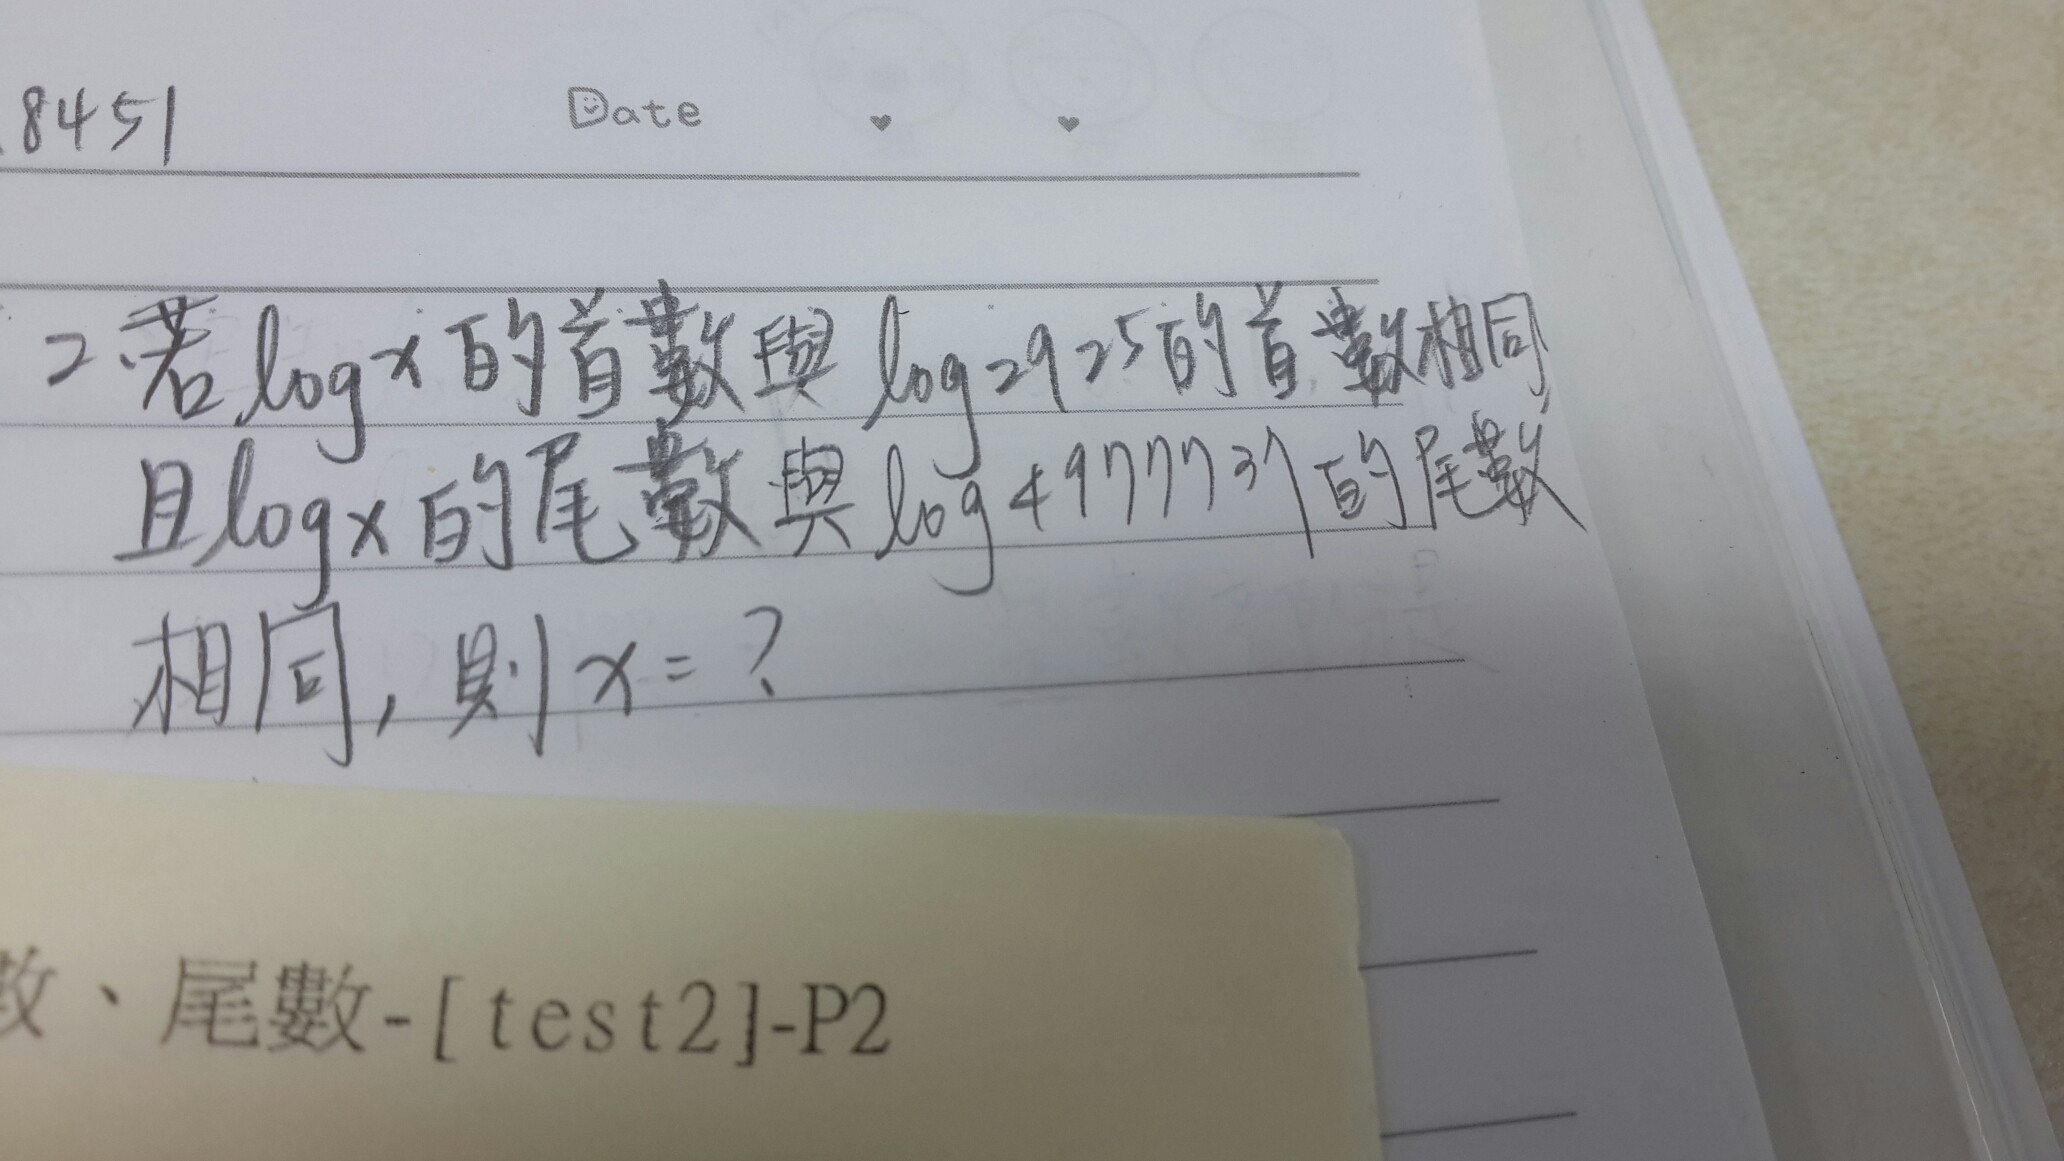 .8451
Date
2.若logx的首數與log2925的首數相同
且logx的尾數與log4977737的尾數
相同,則x=?
數、尾數-[test2]-P2